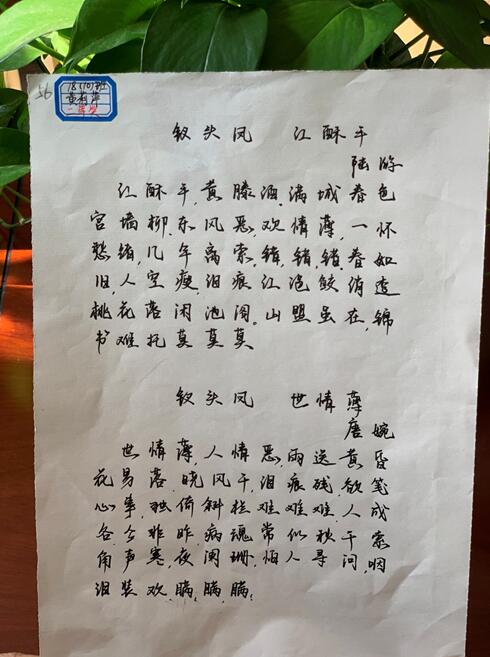 56
18(10)班
一等奖
钗头凤 江酥手
陆游
江酥手,黄滕酒,满城春色
宫墙柳,东风恶,欢情薄,一怀
愁绪,几年离索.错,错,错.春如
旧人空瘦,泪痕红浥鲛绡透
桃花落闲池阁。山盟虽在,锦
书难托莫莫莫
钗头凤 世情薄
唐婉
世情薄,人情恶,雨送黄昏
花易落.晓风干,泪痕残.欲笺
心事,独倚斜栏难难难.人成
各今非昨.病魂常似秋千索
角声寒,夜阑珊,怕人寻问,咽
泪装欢.瞒,瞒,瞒.